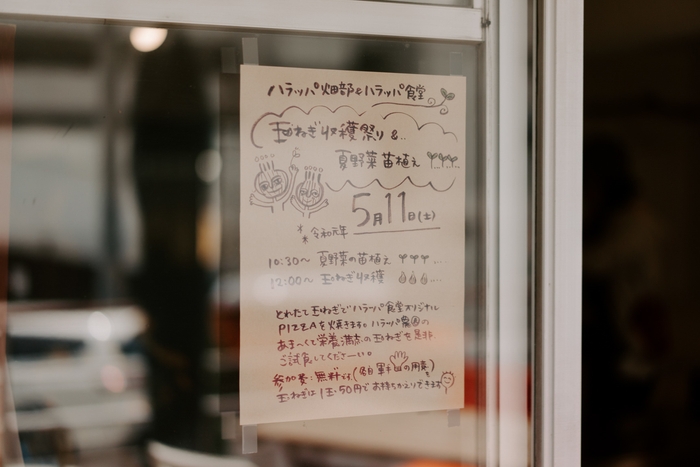 ハラッパ畑部&ハラッパ食堂
玉ねぎ収穫祭り &..
夏野菜苗植え
5月11日(土)
令和元年
10:30〜 夏野菜の苗植え
12:00〜 玉ねぎ収穫
とれたて玉ねぎでハラッパ食堂オリジナル
PIZZAを焼きます。ハラッパ の
あま〜くて栄養満点の玉ねぎを是非
ご試食してくださーい。
参加費:無料です。(各自軍手 の用意)
玉ねぎは1玉・50円でお持ちかえりできます